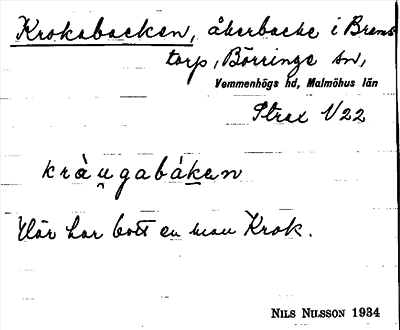 Krokabacken, åkerbacke i Brams
torp, Börringe sn,
Vemmenhögs hd, Malmöhus län
Strax V 22
kràu̯gabáken
Där har bott en man Krok.
NILS NILSSON 1934